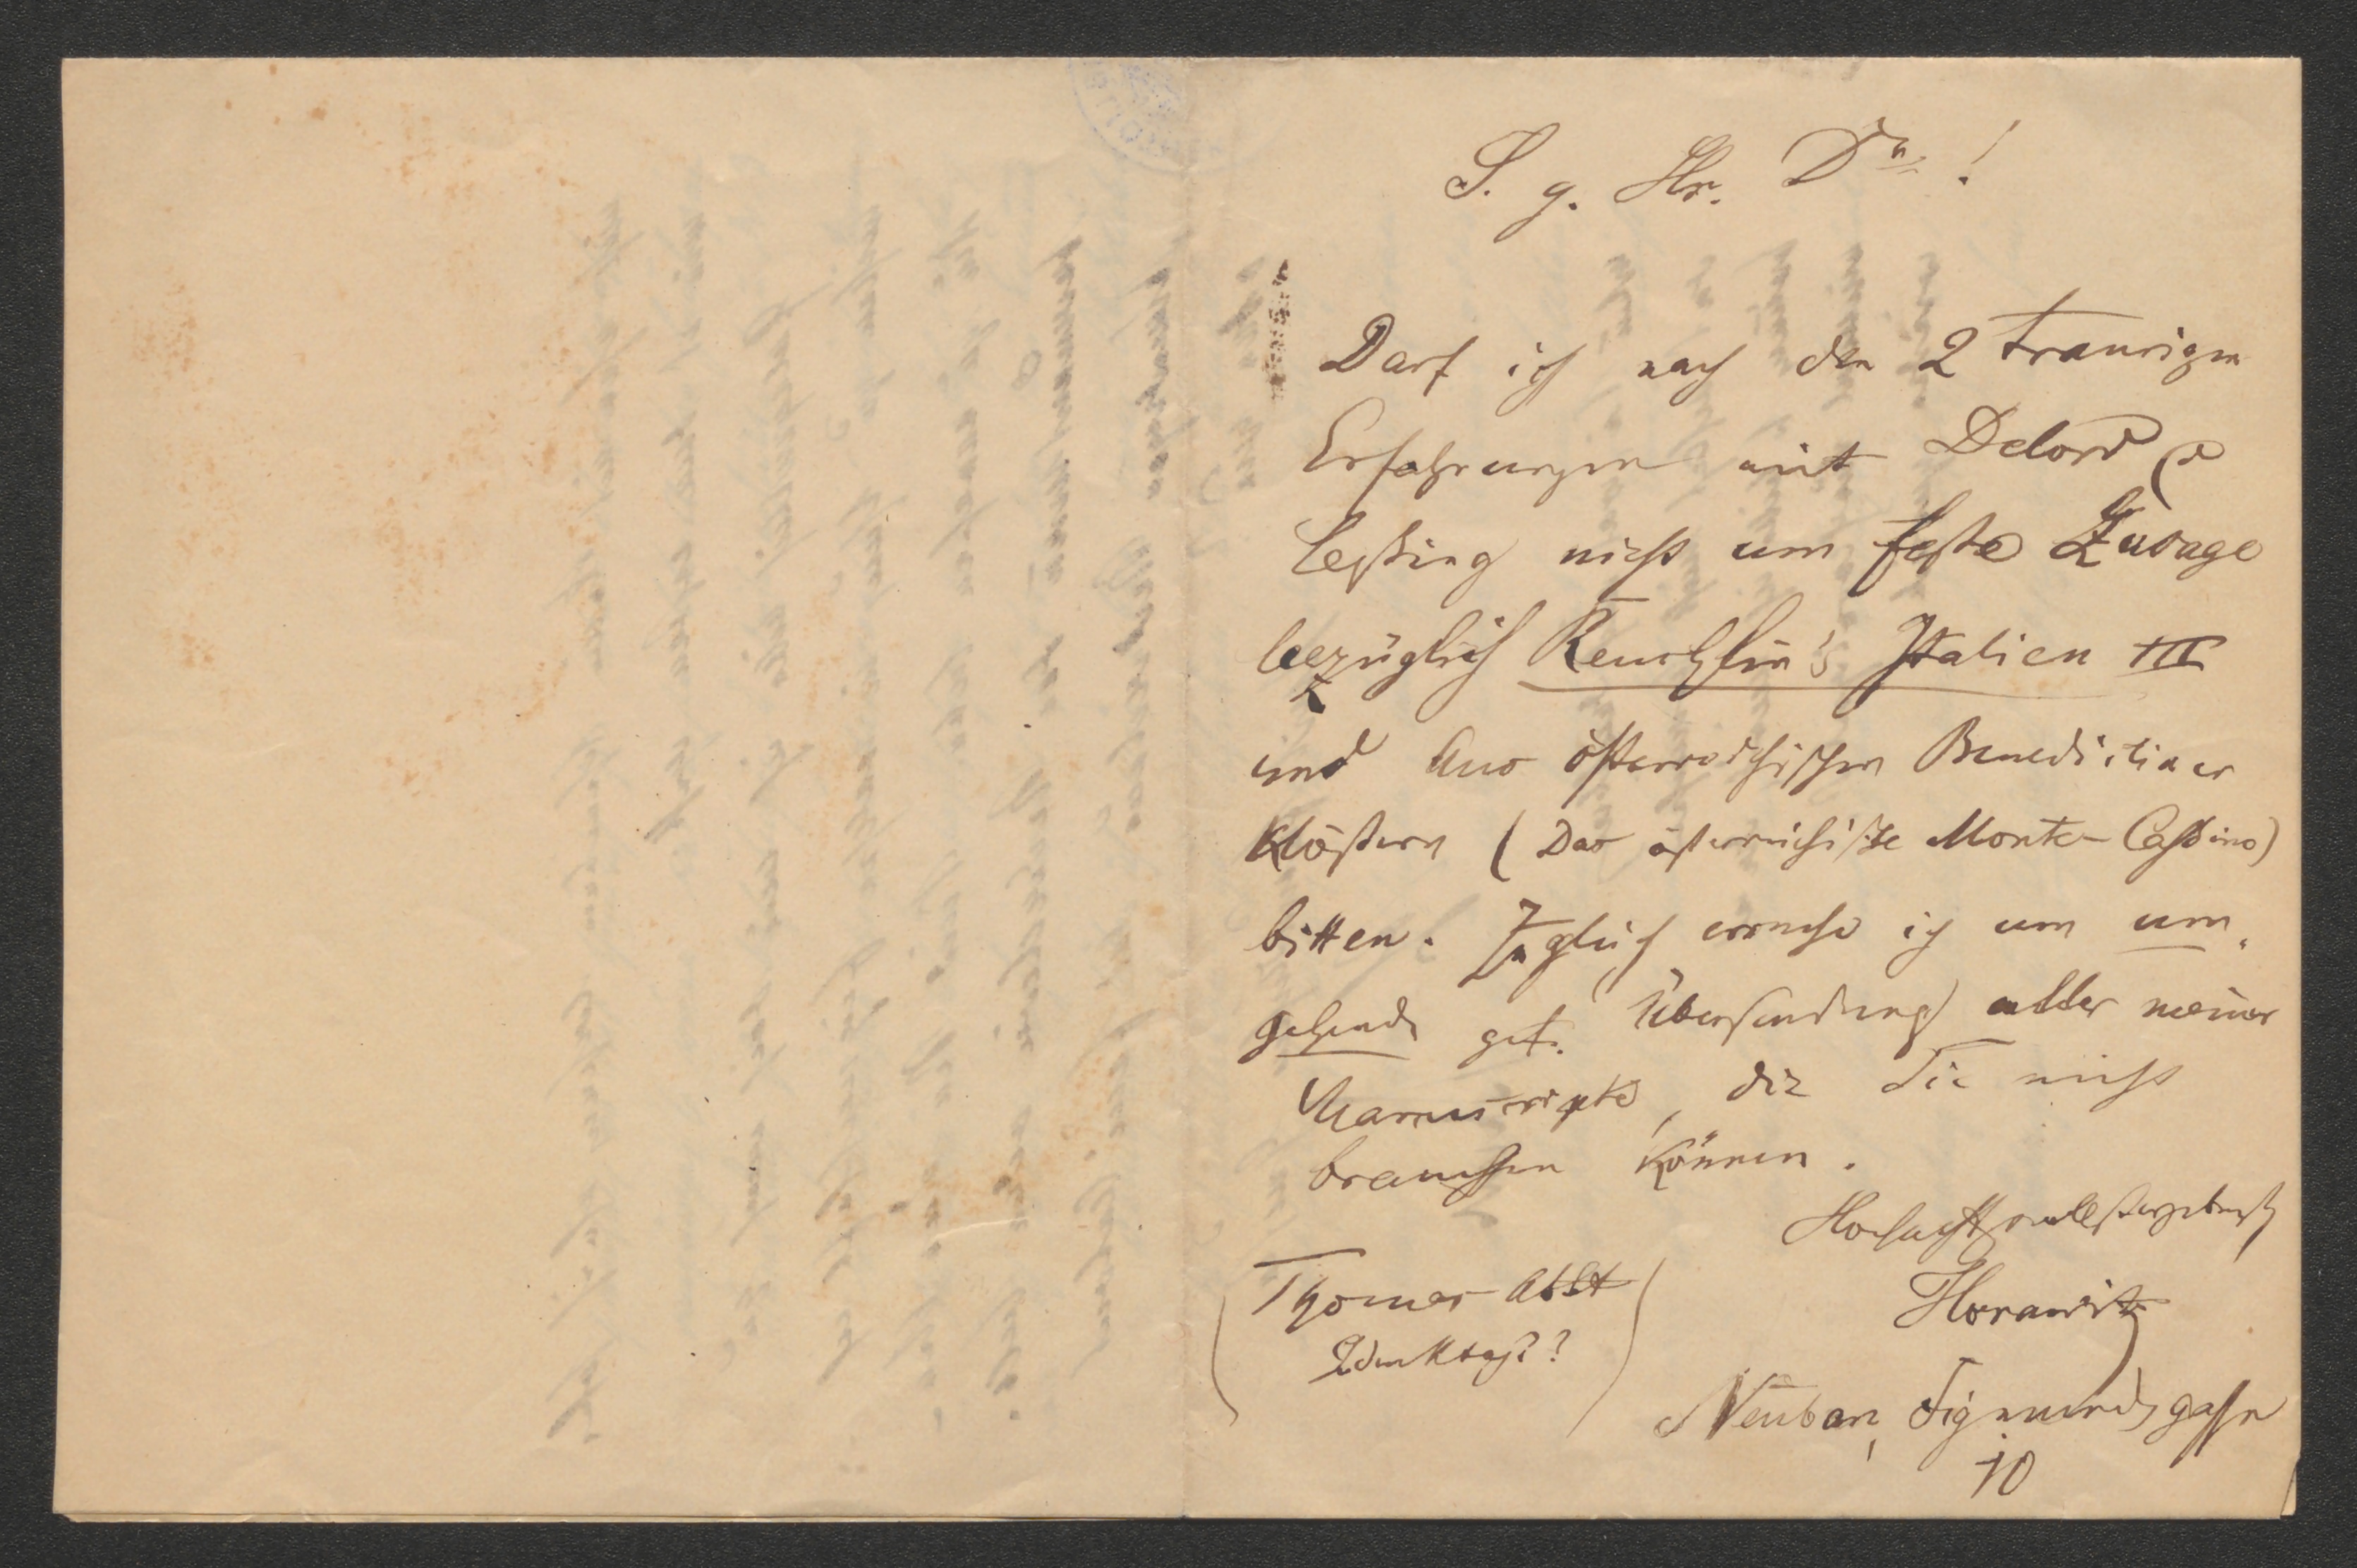 S. g. Hr. Dr.!
Darf ich nach den 2 traurigen
Erfahrungen mit Delord &
Leßing nicht um feste Zusage
bezüglich Reuchlin's Italien III
und Aus österreichischen Benedictiner
Klöstern (Das österreichische Monte-Cassino)
bitten. Zugleich ersuche ich um um-
gehende gef. Übersendung aller meiner
Manuscripte, die Sie nicht
brauchen können.
Hochachtungsvollst ergebenst
Horawitz
(Thomas Abbt
Gedenktag??)
Neubau, Sigmundsgasse
10